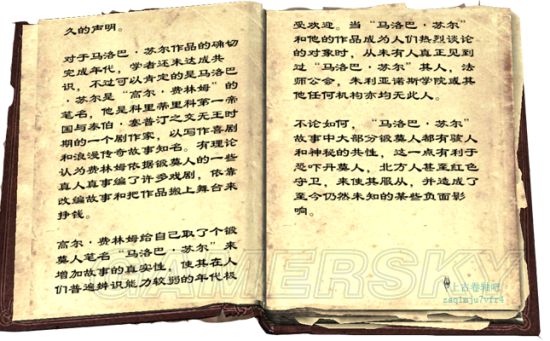 久的声明。
对于马洛巴·苏尔作品的确切
完成年代，学者还未达成共
识，不过可以肯定的是马洛巴
·苏尔是“高尔·费林姆”的
笔名，他是科里蒂里科第一帝
国与泰伯·塞普汀之交无王时
期的一个剧作家，以写作喜剧
和浪漫传奇故事知名。有理论
认为费林姆依据锻莫人的一些
真人真事编了许多戏剧，依靠
改编故事和把作品搬上舞台来
挣钱。
高尔·费林姆给自己取了个锻
莫人笔名“马洛巴·苏尔”来
增加故事的真实性，使其在人
们普遍辨识能力较弱的年代极
受欢迎。当“马洛巴·苏尔”
和他的作品成为人们热烈谈论
的对象时，从未有人真正见到
过“马洛巴·苏尔”其人，法
师公会，朱利亚诺斯学院或其
他任何机构亦均无此人。
不论如何，“马洛巴·苏尔”
故事中大部分锻莫人都有骇人
和神秘的共性，这一点有利于
恐吓丹莫人，北方人甚至红色
守卫，来使其服从，并造成了
至今仍然未知的某些负面影
响。
GAMERSKY
上古卷轴吧
zaqlmju7vfr4